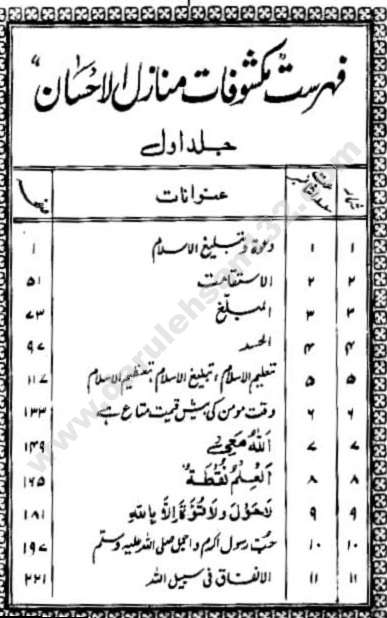 فہرست مکشوفات منازل الاحسان
جلد اول
شمار عنوانات
۱ ۱ دعوۃ و تبلیغ الاسلام ۱
۲ ۲ الاستقامت ۵۱
۳ ۳ المبلّغ ۷۳
۴ ۴ ۹۷
۵ ۵ تعلیم الاسلام، تبلیغ الاسلام، تعظیم الاسلام ۱۱۷
۶ ۶ وقت مومن کی بیش قیمت متاع ہے ۱۳۳
۷ ۷ اَللّٰهُ مَعِیَ ۱۴۹
۸ ۸ اَلْعِلْمُ نُقْطَةٌ ۱۶۵
۹ ۹ لَاحَوْلَ وَلَا قُوَّةَ اِلَّا بِاللّٰهِ ۱۸۱
۱۰ ۱۰ حبّ رسول اکرم و اجمل صلی اللہ علیہ وسلم ۱۹۷
۱۱ ۱۱ الانفاق فی سبیل اللہ ۲۲۱